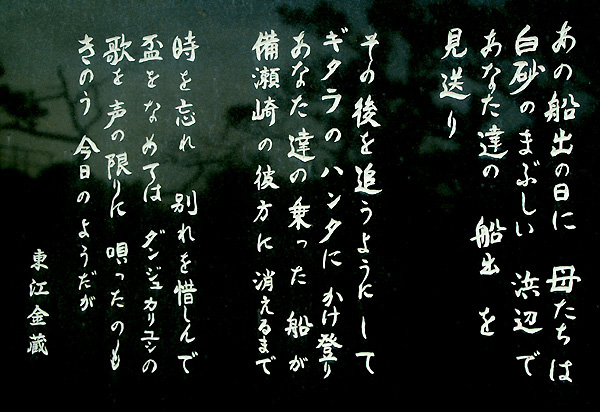 あの船出の日に 母たちは
白砂のまぶしい 浜辺で
あなた達の 船出 を
見送り
その後を追うようにして
ギタラのハンタに かけ登り
あなた達の乗った 船が
備瀬崎の彼方に 消えるまで
時を忘れ 別れを惜しんで
盃をなめては ダンジュカリユシの
歌を 声の限りに 唄ったのも
きのう 今日のようだが
東江金蔵